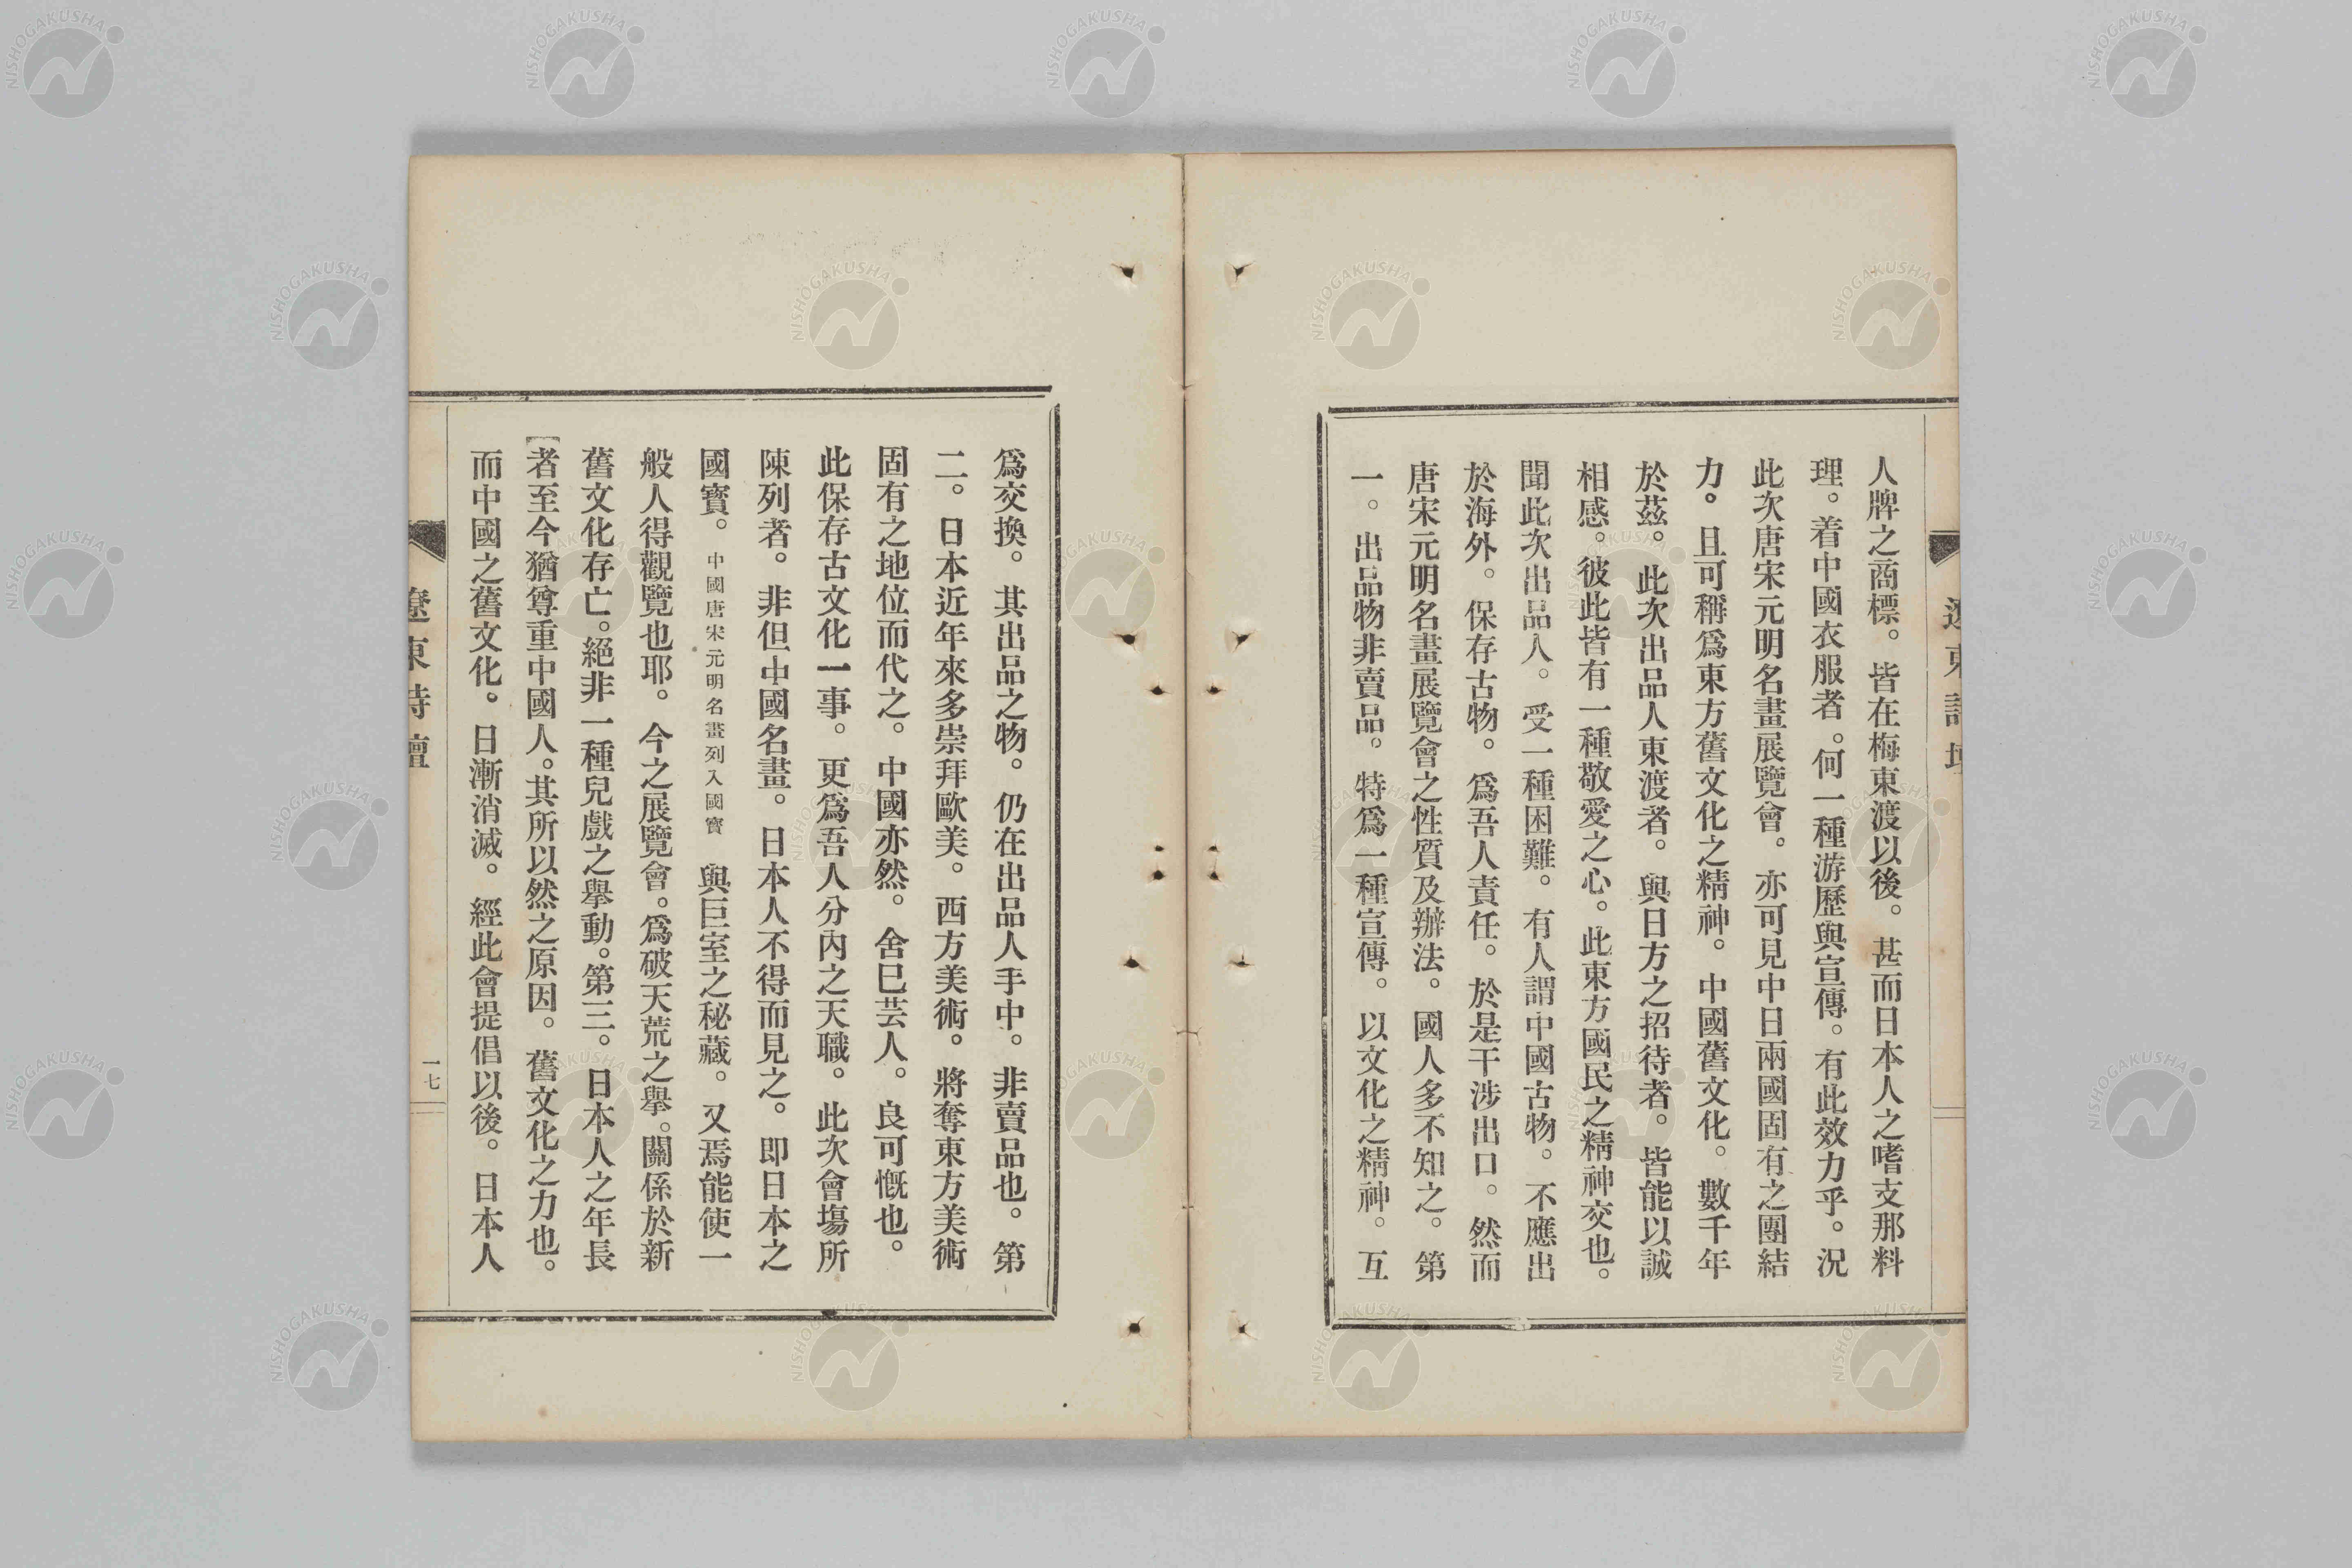 人牌之商標。皆在梅東渡以後。甚而日本人之嗜支那料
理。着中國衣服者。何一種游歷與宣傳。有此效力乎。況
此次唐宋元明名畫展覽會。亦可見中日兩國固有之團結
力。且可稱爲東方舊文化之精神。中國舊文化。數千年
於茲。此次出品人東渡者。與日方之招待者。皆能以誠
相感。彼此皆有一種敬愛之心。此東方國民之精神交也。
聞此次出品人。受一種困難。有人謂中國古物。不應出
於海外。保存古物。爲吾人責任。於是干涉出口。然而
唐宋元明名畫展覽會之性質及辦法。國人多不知之。第
一。出品物非賣品。特爲一種宣傳。以文化之精神。互
爲交換。其出品之物。仍在出品人手中。非賣品也。第
二。日本近年來多崇拜歐美。西方美術。將奪東方美術
固有之地位而代之。中國亦然。舍已芸人。良可慨也。
此保存古文化一事。更爲吾人分內之天職。此次會塲所
陳列者。非但中國名畫。日本人不得而見之。即日本之
國寶。中國唐宋元明名畫列入國寶 與巨室之秘藏。又焉能使一
般人得觀覽也耶。今之展覽會。爲破天荒之舉。關係於新
舊文化存亡。絕非一種兒戲之舉動。第三。日本人之年長
〔者至今猶尊重中國人。其所以然之原因。舊文化之力也。
而中國之舊文化。日漸消滅。經此會提倡以後。日本人
遼東詩壇
一七
遼東詩壇
NISHOGAKUSHA